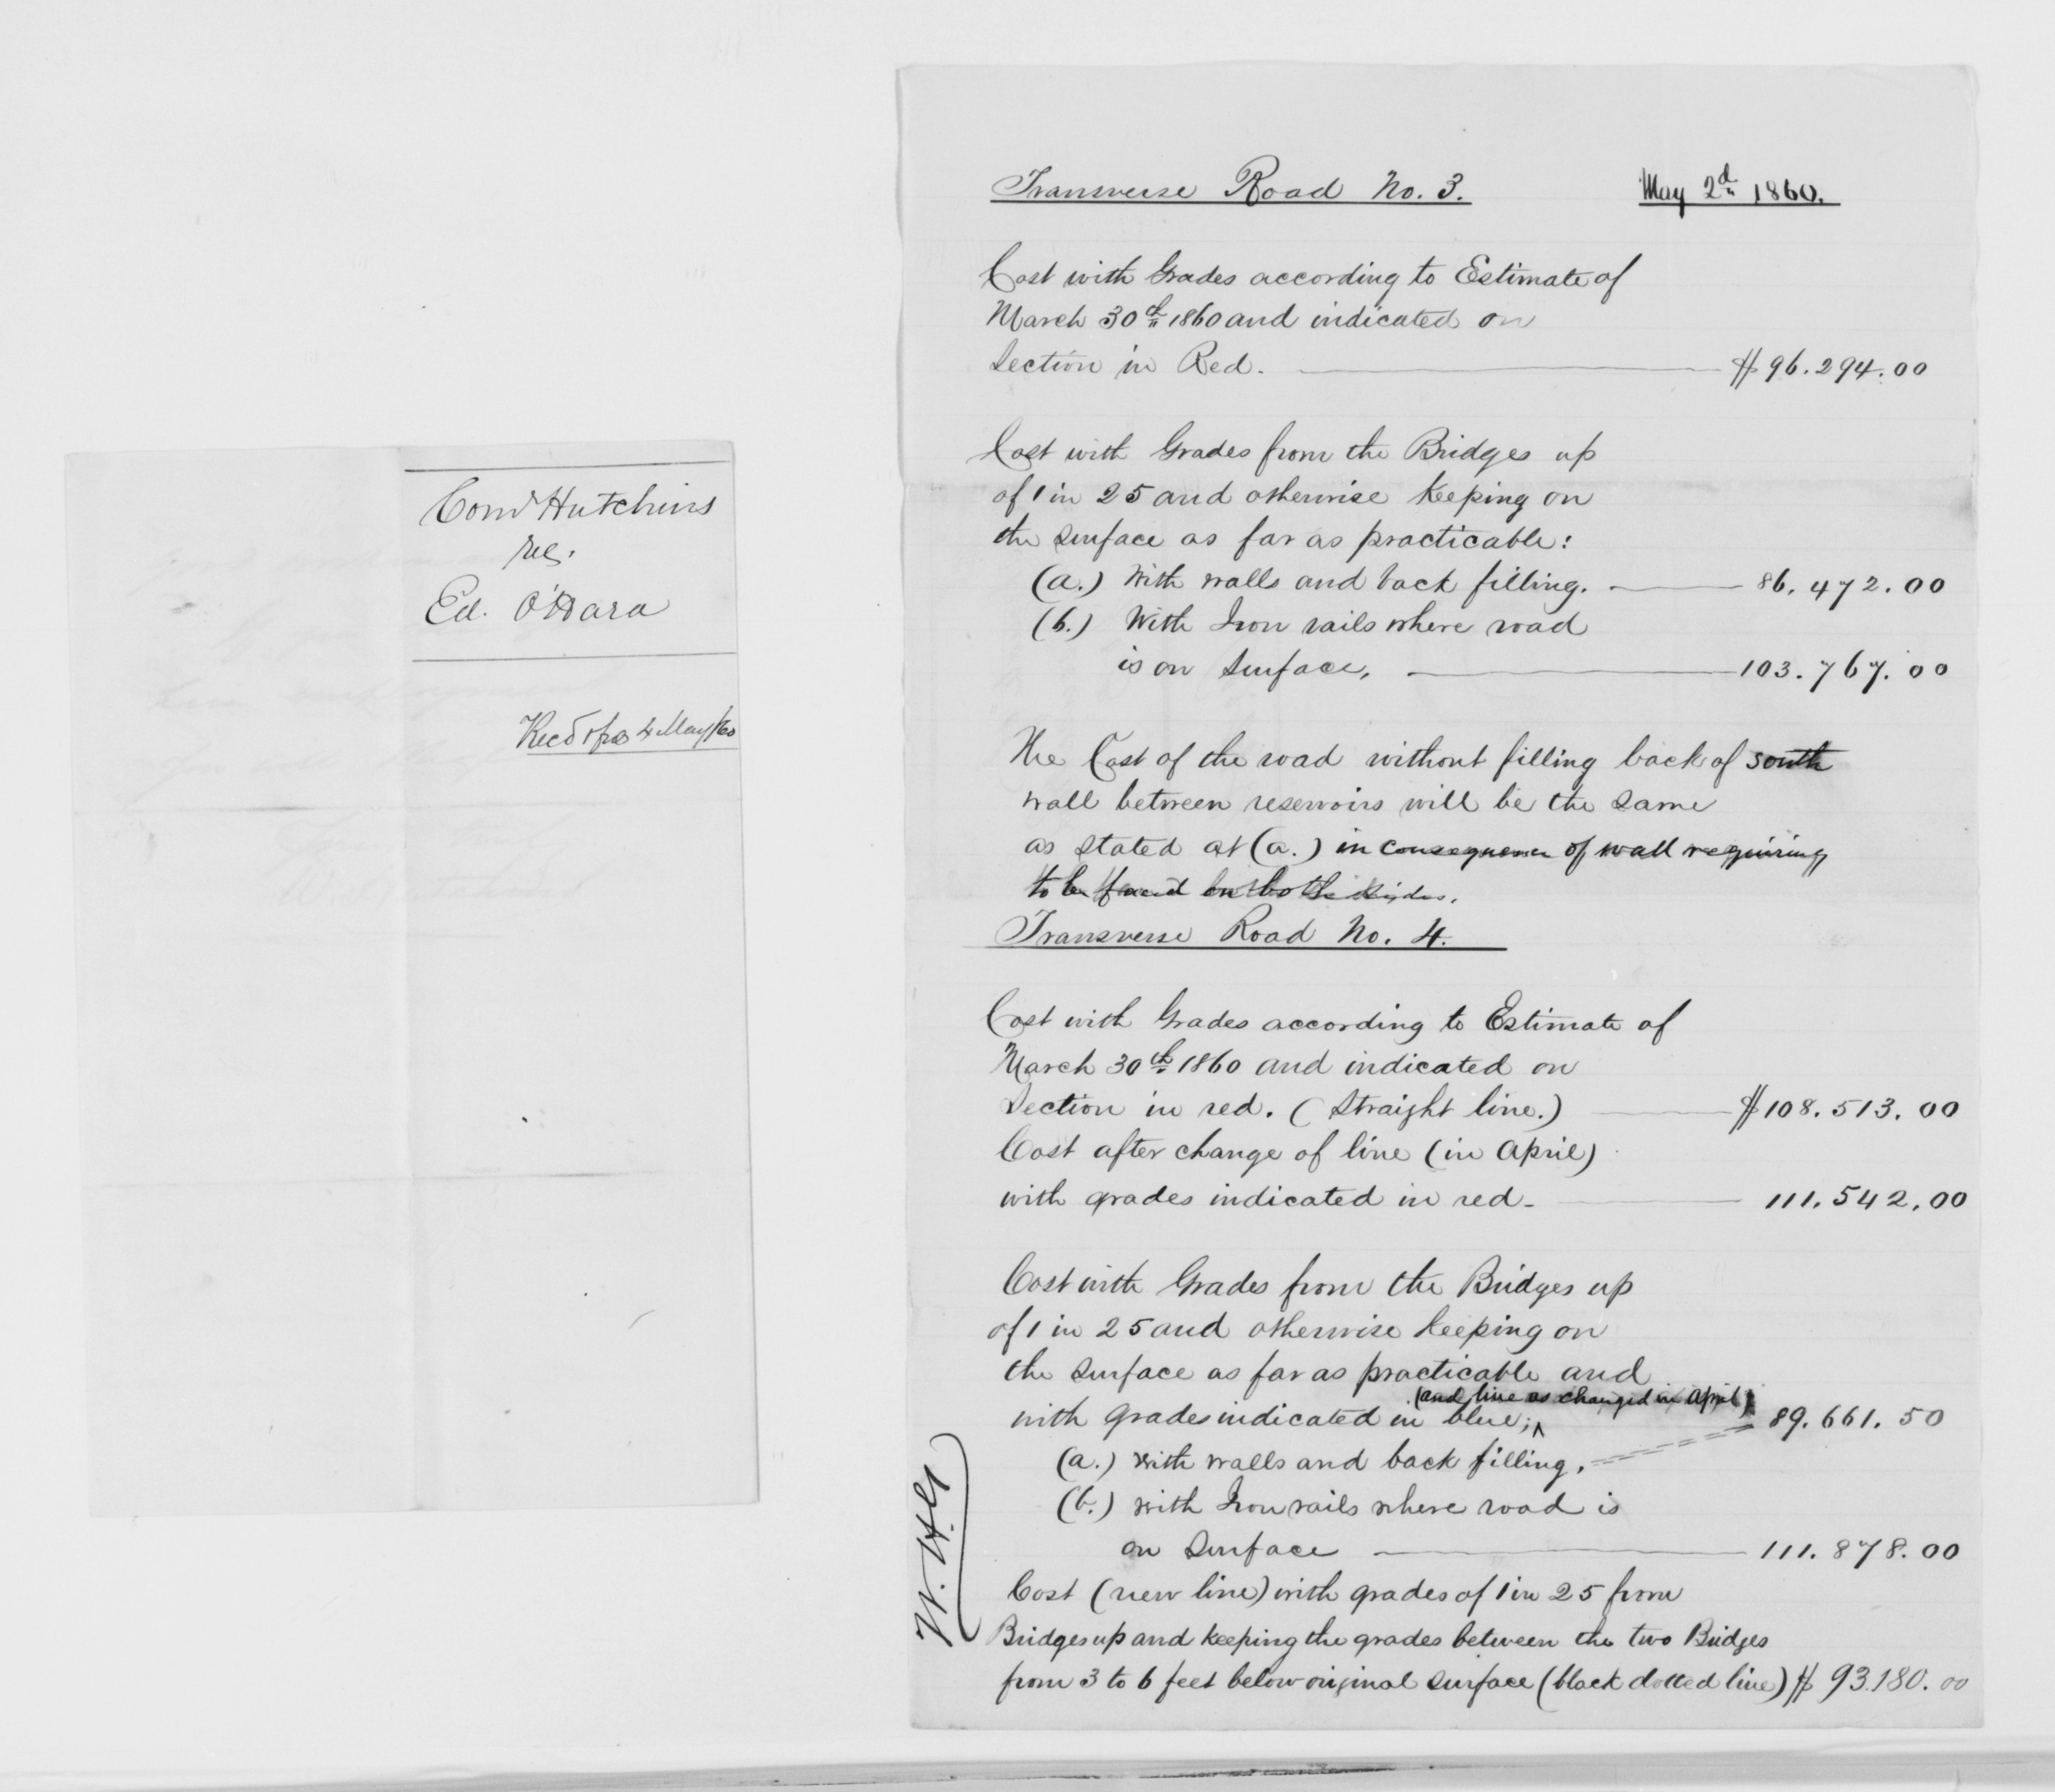 Comr Hutchins
re.
Ed. O'Hara
Recd 4 May/60
Transverse Road No. 3. May 2d 1860.
Cost with Grades according to Estimate of
March 30th 1860 and indicated on
Section in Red. $96.294.00
Cost with Grades from the Bridges up
of 1 in 25 and otherwise keeping on
the surface as far as practicable:
(a.) With walls and back filling. 86.472.00
(b.) With Iron rails where road
is on surface, 103.767.00
The Cost of the road without filling back of south
wall between reservoirs will be the same
as stated at (a.) in consequence of wall requiring
to be faced on both sides.
Transverse Road No. 4.
Cost with Grades according to Estimate of
March 30th 1860 and indicated on
Section in red. (Straight line.) $108.513.00
Cost after change of line (in April)
with grades indicated in red- 111.542.00
Cost with Grades from the Bridges up
of 1 in 25 and otherwise keeping on
the surface as far as practicable and
(and line as changed in April)
with grades indicated in blue; 89.661.50
(a.) with walls and back filling,
(b.) with Iron rails where road is
on surface 111.878.00
Cost (new line) with grades of 1 in 25 from
Bridges up and keeping the grades between the two Bridges
from 3 to 6 feet below original surface (black dotted line) $93.180.00
W.H.G